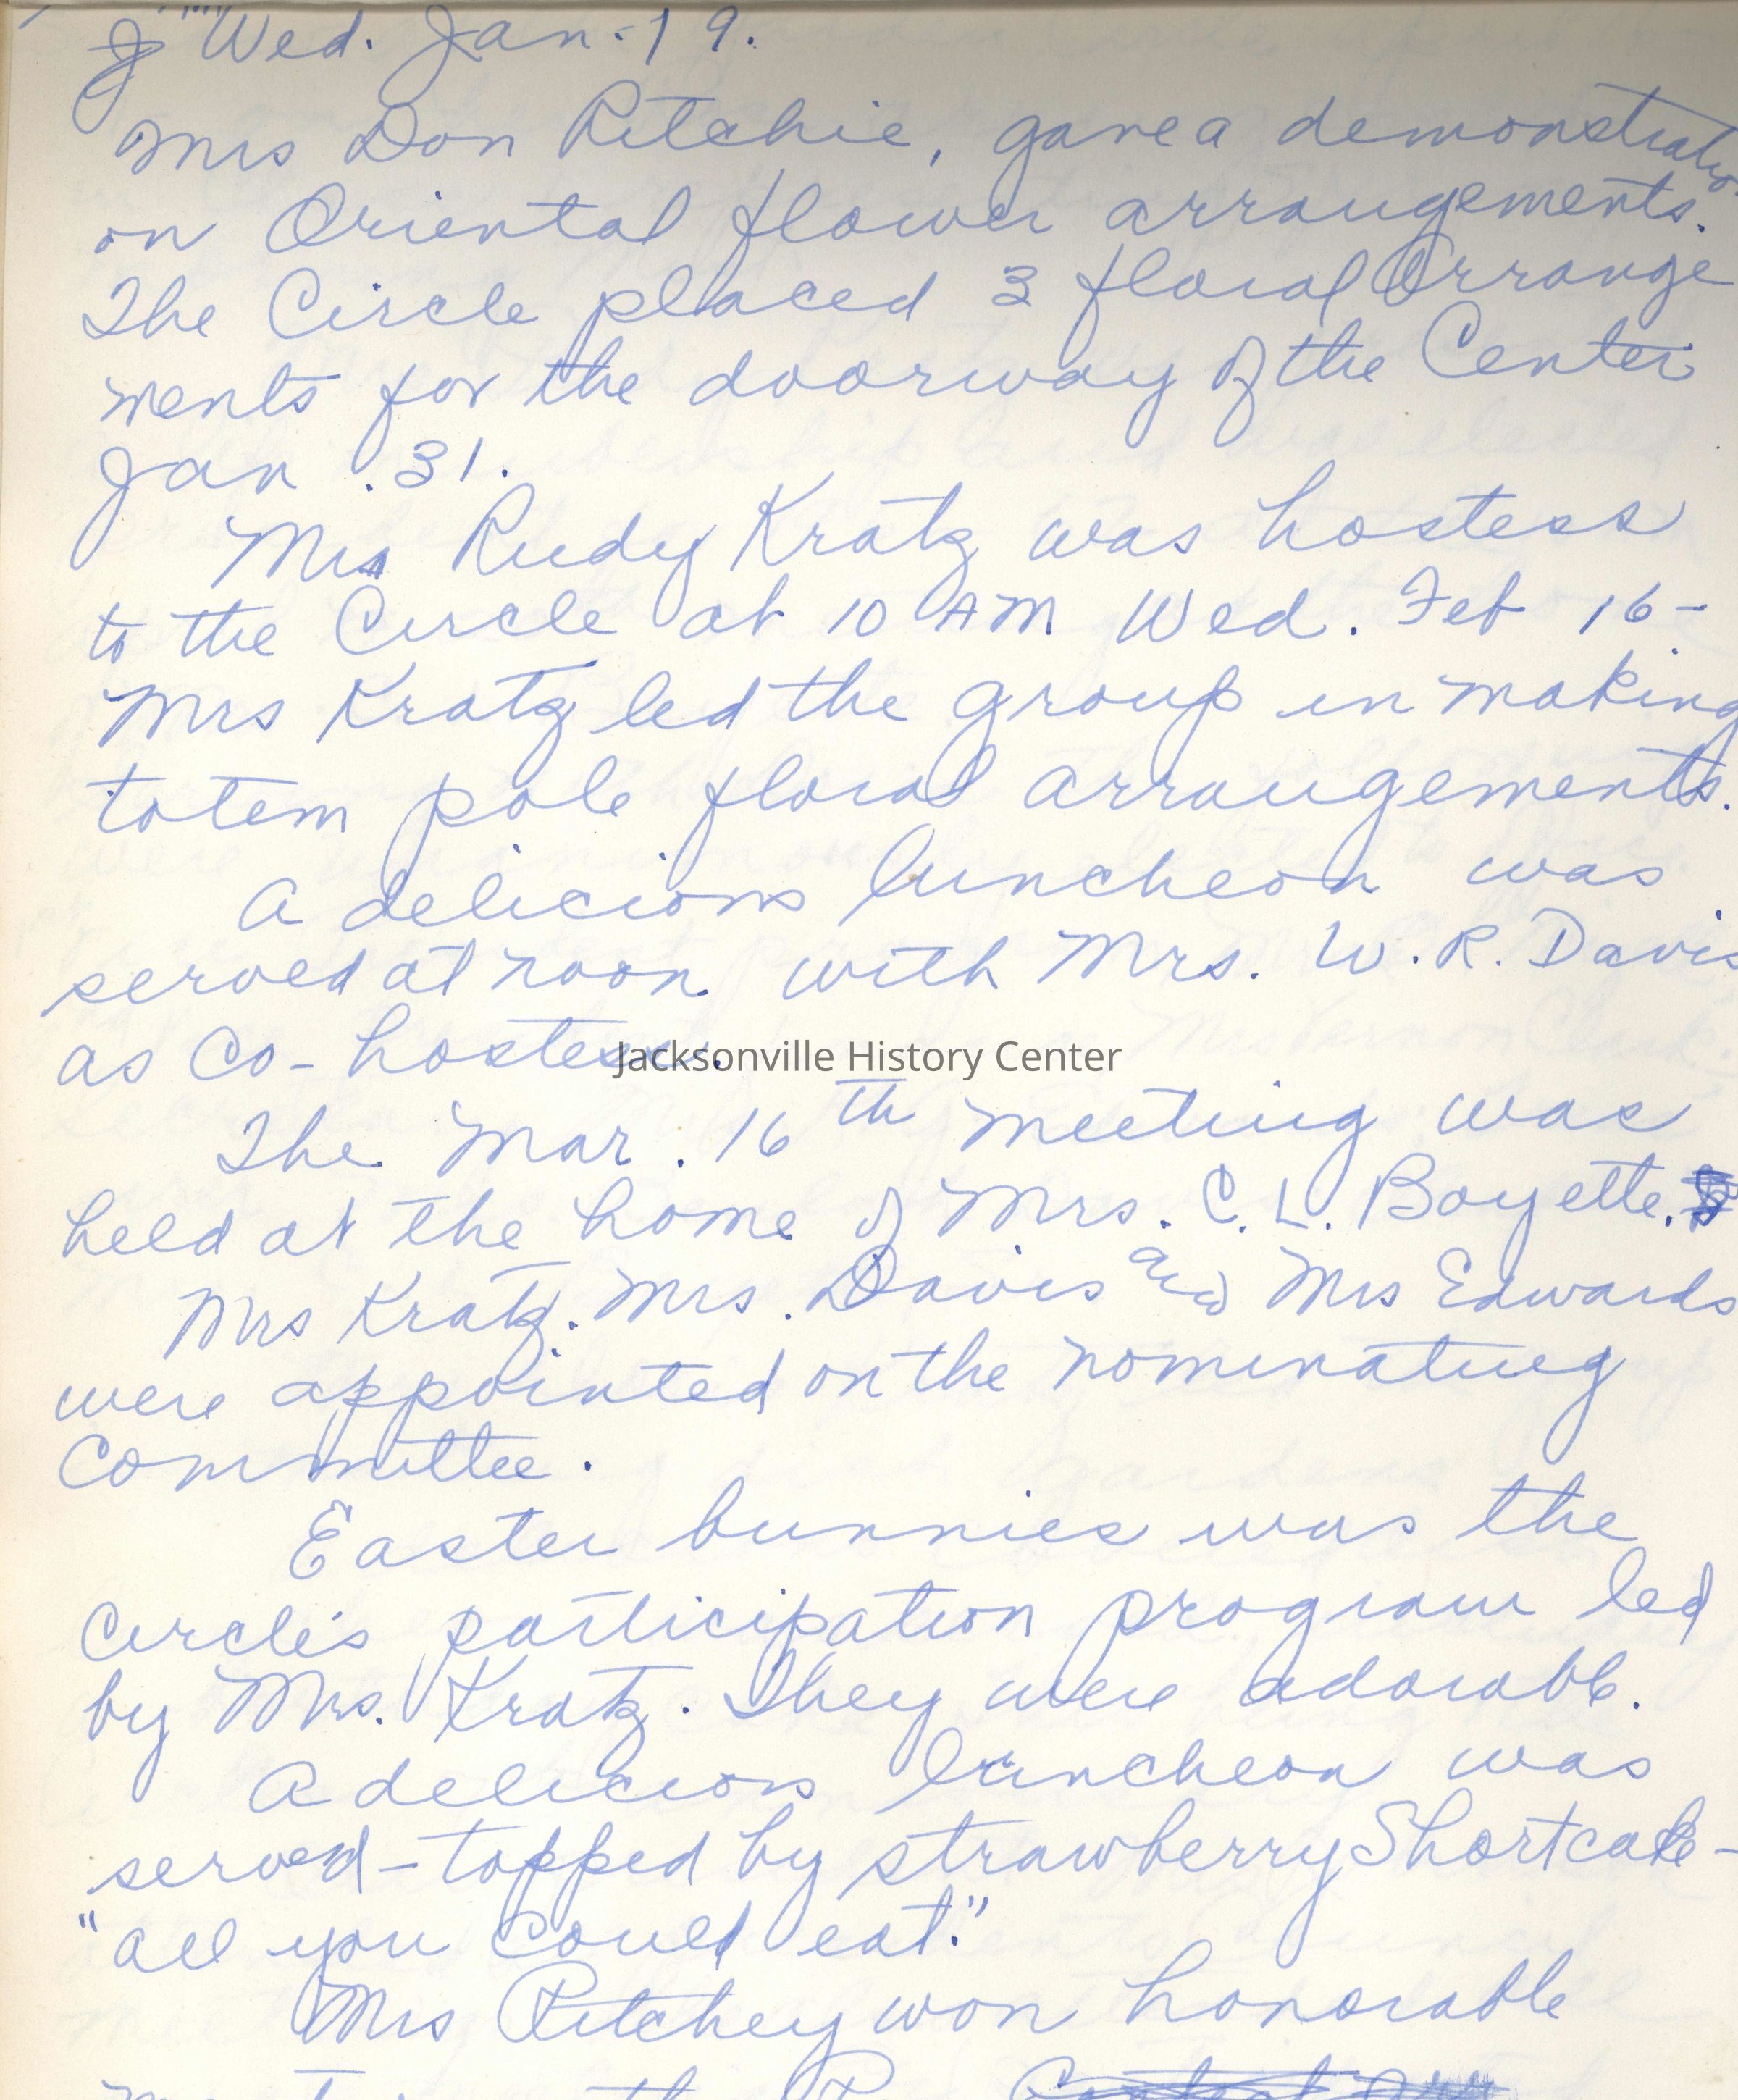 Wed. Jan-19.
Mrs Don Ritchie, gave a demonstratio
on Oriental flower arrangements.
The Circle placed 3 floral Arrange
ments for the doorway of the Center
Jan. 31.
Mrs Rudy Kratz was hostess
to the Circle at 10 AM Wed. Feb 16-
Mrs Kratz led the group in making
totem pole floral arrangements.
A delicious luncheon was
served at noon with Mrs. W. R. Davis
as Co-hostess.
Jacksonville History Center
The Mar. 16th meeting was
held at the home of Mrs. C. L. Boyette.
Mrs Kratz. Mrs. Davis and Mrs Edwards
were appointed on the nominating
Committee.
Easter bunnies was the
Circle's participation program led
by Mrs. Kratz. They were adorable.
A delicious luncheon was
served - topped by strawberry Shortcake -
"all you could eat."
Mrs Ritchey won honorable